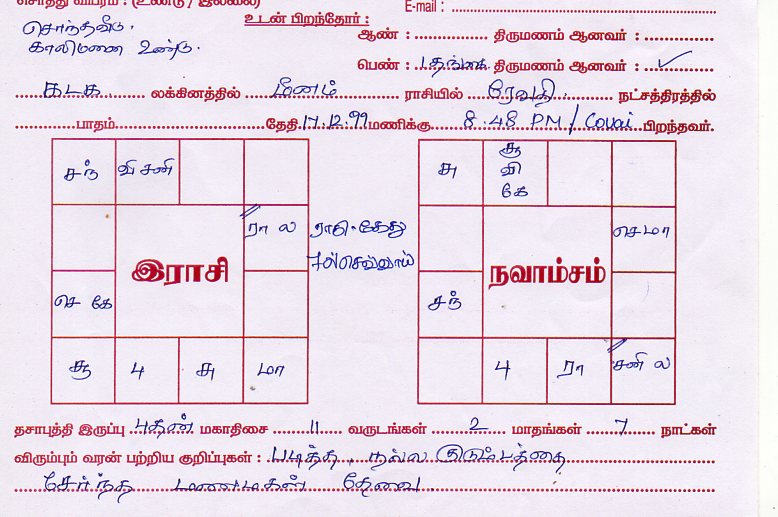 சொத்து விபரம் : (உண்டு / இல்லை)
E-mail :
சொந்தவீடு,
காலிமனை உண்டு.
உடன் பிறந்தோர் :
ஆண் : திருமணம் ஆனவர் :
பெண் : 1 தங்கை திருமணம் ஆனவர் : ✓
கடக லக்கினத்தில் மீனம் ராசியில் ரேவதி நட்சத்திரத்தில்
பாதம் தேதி 17.12.99 மணிக்கு 8.48 PM / Covai பிறந்தவர்.
சந் வி சனி
ரா ல
இராசி
செ கே
சூ 4 சு மா
ராகு-கேது
7ல் செவ்வாய்
சு சூ வி கே
செ மா
நவாம்சம்
சந்
4 ரா சனி ல
தசாபுத்தி இருப்பு புதன் மகாதிசை 11 வருடங்கள் 2 மாதங்கள் 7 நாட்கள்
விரும்பும் வரன் பற்றிய குறிப்புகள் : படித்த, நல்ல குடும்பத்தை
சேர்ந்த மணமகன் தேவை